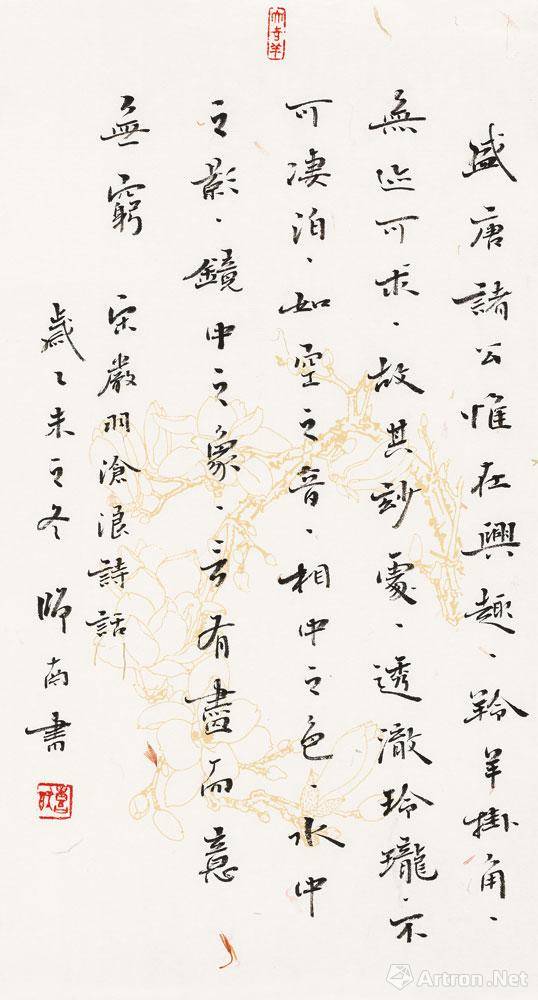 盛唐諸公惟在興趣、羚羊掛角、
無迹可求、故其妙處、透澈玲瓏、不
可凄泊、如空之音、相中之色、水中
之影、鏡中之象、言有盡而意
無窮
宋嚴羽滄浪詩話
歲乙未之冬 師南書
雅昌艺术网
Artron.Net